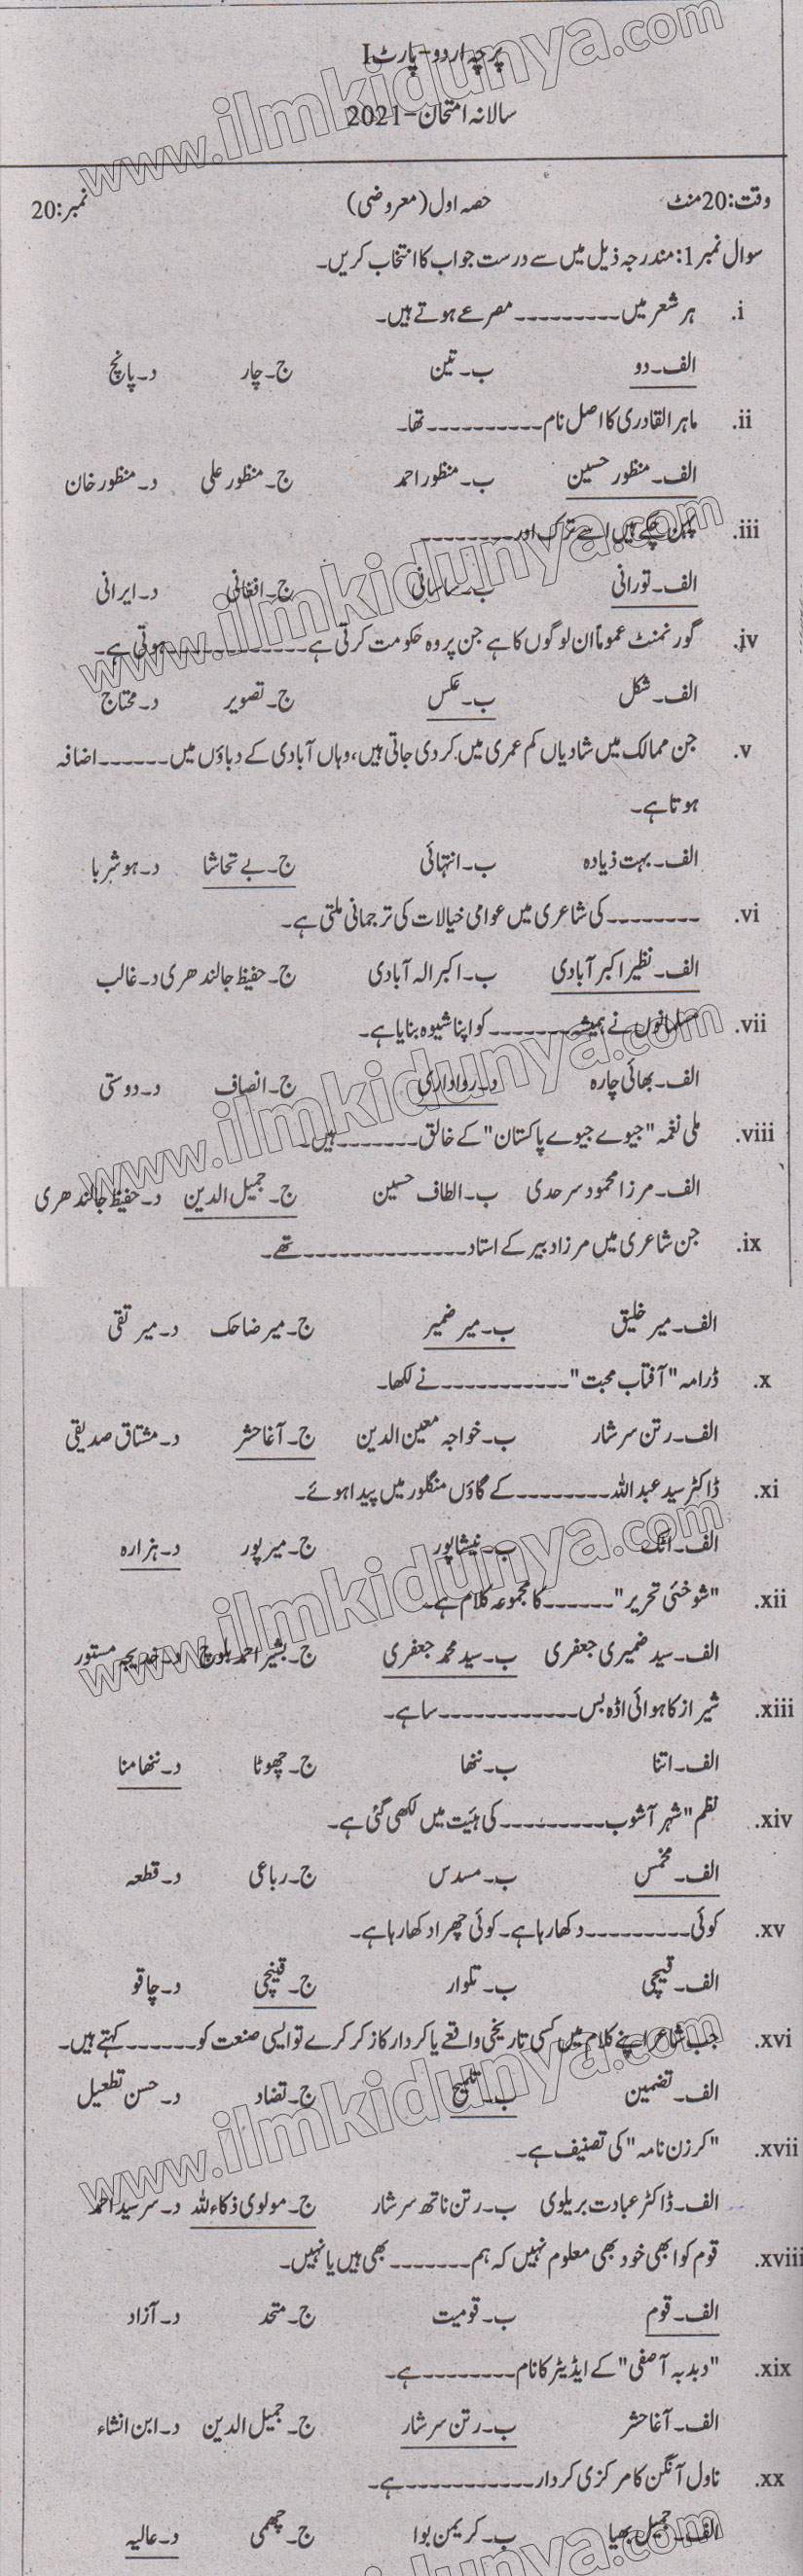 پرچہ اردو-پارٹ I
سالانہ امتحان-2021
وقت:20منٹ حصہ اول (معروضی) نمبر:20
سوال نمبر1: مندرجہ ذیل میں سے درست جواب کا انتخاب کریں۔
.i ہر شعر میں --------- مصرعے ہوتے ہیں۔
الف۔ دو ب۔ تین ج۔ چار د۔ پانچ
.ii ماہر القادری کا اصل نام---------- تھا۔
الف۔ منظور حسین ب۔ منظور احمد ج۔ منظور علی د۔ منظور خان
.iii پہن چکے ہیں اسے ترک اور--------
الف۔ تورانی ب۔ ساسانی ج۔ افغانی د۔ ایرانی
.iv گورنمنٹ عموماً ان لوگوں کا ہے جن پر وہ حکومت کرتی ہے------------ ہوتی ہے۔
الف۔ شکل ب۔ عکس ج۔ تصویر د۔ محتاج
.v جن ممالک میں شادیاں کم عمری میں کر دی جاتی ہیں، وہاں آبادی کے دباؤں میں ------ اضافہ
ہوتا ہے۔
الف۔ بہت ذیادہ ب۔ انتہائی ج۔ بے تحاشا د۔ ہوشربا
.vi -------- کی شاعری میں عوامی خیالات کی ترجمانی ملتی ہے۔
الف۔ نظیر اکبر آبادی ب۔ اکبر الہ آبادی ج۔ حفیظ جالندھری د۔ غالب
.vii مسلمانوں نے ہمیشہ-------- کو اپنا شیوہ بنایا ہے۔
الف۔ بھائی چارہ د۔ رواداری ج۔ انصاف د۔ دوستی
.viii ملی نغمہ "جیوے جیوے پاکستان" کے خالق------- ہیں۔
الف۔ مرزا محمود سرحدی ب۔ الطاف حسین ج۔ جمیل الدین د۔ حفیظ جالندھری
.ix جن شاعری میں مرزا دبیر کے استاد-------------- تھے۔
الف۔ میر خلیق ب۔ میر ضمیر ج۔ میر ضاحک د۔ میر تقی
.x ڈرامہ "آفتاب محبت"----------- نے لکھا۔
الف۔ رتن سرشار ب۔ خواجہ معین الدین ج۔ آغا حشر د۔ مشتاق صدیقی
.xi ڈاکٹر سید عبداللہ-------- کے گاؤں منگلور میں پیدا ہوئے۔
الف۔ اٹک ب۔ نیشاپور ج۔ میر پور د۔ ہزارہ
.xii "شوخئی تحریر"------ کا مجموعہ کلام ہے۔
الف۔ سید ضمیری جعفری ب۔ سید محمد جعفری ج۔ بشیر احمد بلوچ د۔ خدیجہ مستور
.xiii شیراز کا ہوائی اڈہ بس------------ سا ہے۔
الف۔ اتنا ب۔ ننھا ج۔ چھوٹا د۔ ننھا منا
.xiv نظم "شہر آشوب--------- کی ہئیت میں لکھی گئی ہے۔
الف۔ مخمس ب۔ مسدس ج۔ رباعی د۔ قطعہ
.xv کوئی--------- دکھا رہا ہے۔ کوئی چھرا دکھا رہا ہے۔
الف۔ قیچی ب۔ تلوار ج۔ قینچی د۔ چاقو
.xvi جب شاعر اپنے کلام میں کسی تاریخی واقعے یا کردار کا ذکر کرے تو ایسی صنعت کو------ کہتے ہیں۔
الف۔ تضمین ب۔ تلمیح ج۔ تضاد د۔ حسن تعلیل
.xvii "کرزن نامہ" کی تصنیف ہے۔
الف۔ ڈاکٹر عبادت بریلوی ب۔ رتن ناتھ سرشار ج۔ مولوی ذکاءللہ د۔ سر سید احمد
.xviii قوم کو ابھی خود بھی معلوم نہیں کہ ہم------- بھی ہیں یا نہیں۔
الف۔ قوم ب۔ قومیت ج۔ متحد د۔ آزاد
.xix "دبدبہ آصفی" کے ایڈیٹر کا نام-------- ہے۔
الف۔ آغا حشر ب۔ رتن سرشار ج۔ جمیل الدین د۔ ابن انشاء
.xx ناول آنگن کا مرکزی کردار----------- ہے۔
الف۔ جمیل بھیا ب۔ کریمن بوا ج۔ چھمی د۔ عالیہ
www.ilmkidunya.com
www.ilmkidunya.com
www.ilmkidunya.com
www.ilmkidunya.com
www.ilmkidunya.com